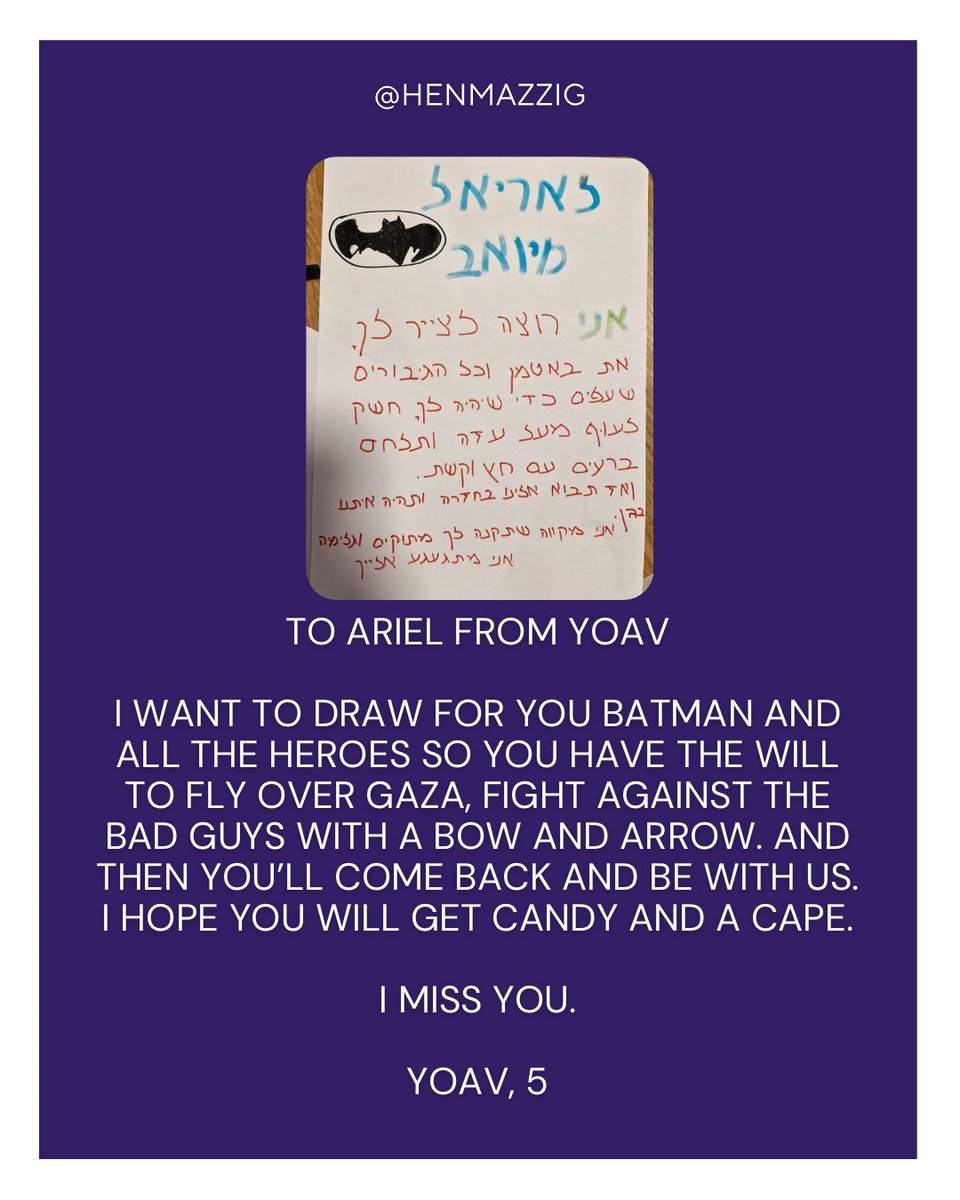 @HENMAZZIG
לאריאל
מיואב
אני רוצה לצייר לך
את באטמן וכל הגיבורים
שעלים כדי שיהיה לך חשק
לעוף מעל עדה ותלחם
ברעים עם חץ וקשת.
ואד תבוא אלינו בחדרה ותהיה איתנו
בגן.
אני מיקווה שתקנה לך מתוקים וגלימה
אני מתגעגע אלייך
TO ARIEL FROM YOAV
I WANT TO DRAW FOR YOU BATMAN AND
ALL THE HEROES SO YOU HAVE THE WILL
TO FLY OVER GAZA, FIGHT AGAINST THE
BAD GUYS WITH A BOW AND ARROW. AND
THEN YOU’LL COME BACK AND BE WITH US.
I HOPE YOU WILL GET CANDY AND A CAPE.
I MISS YOU.
YOAV, 5